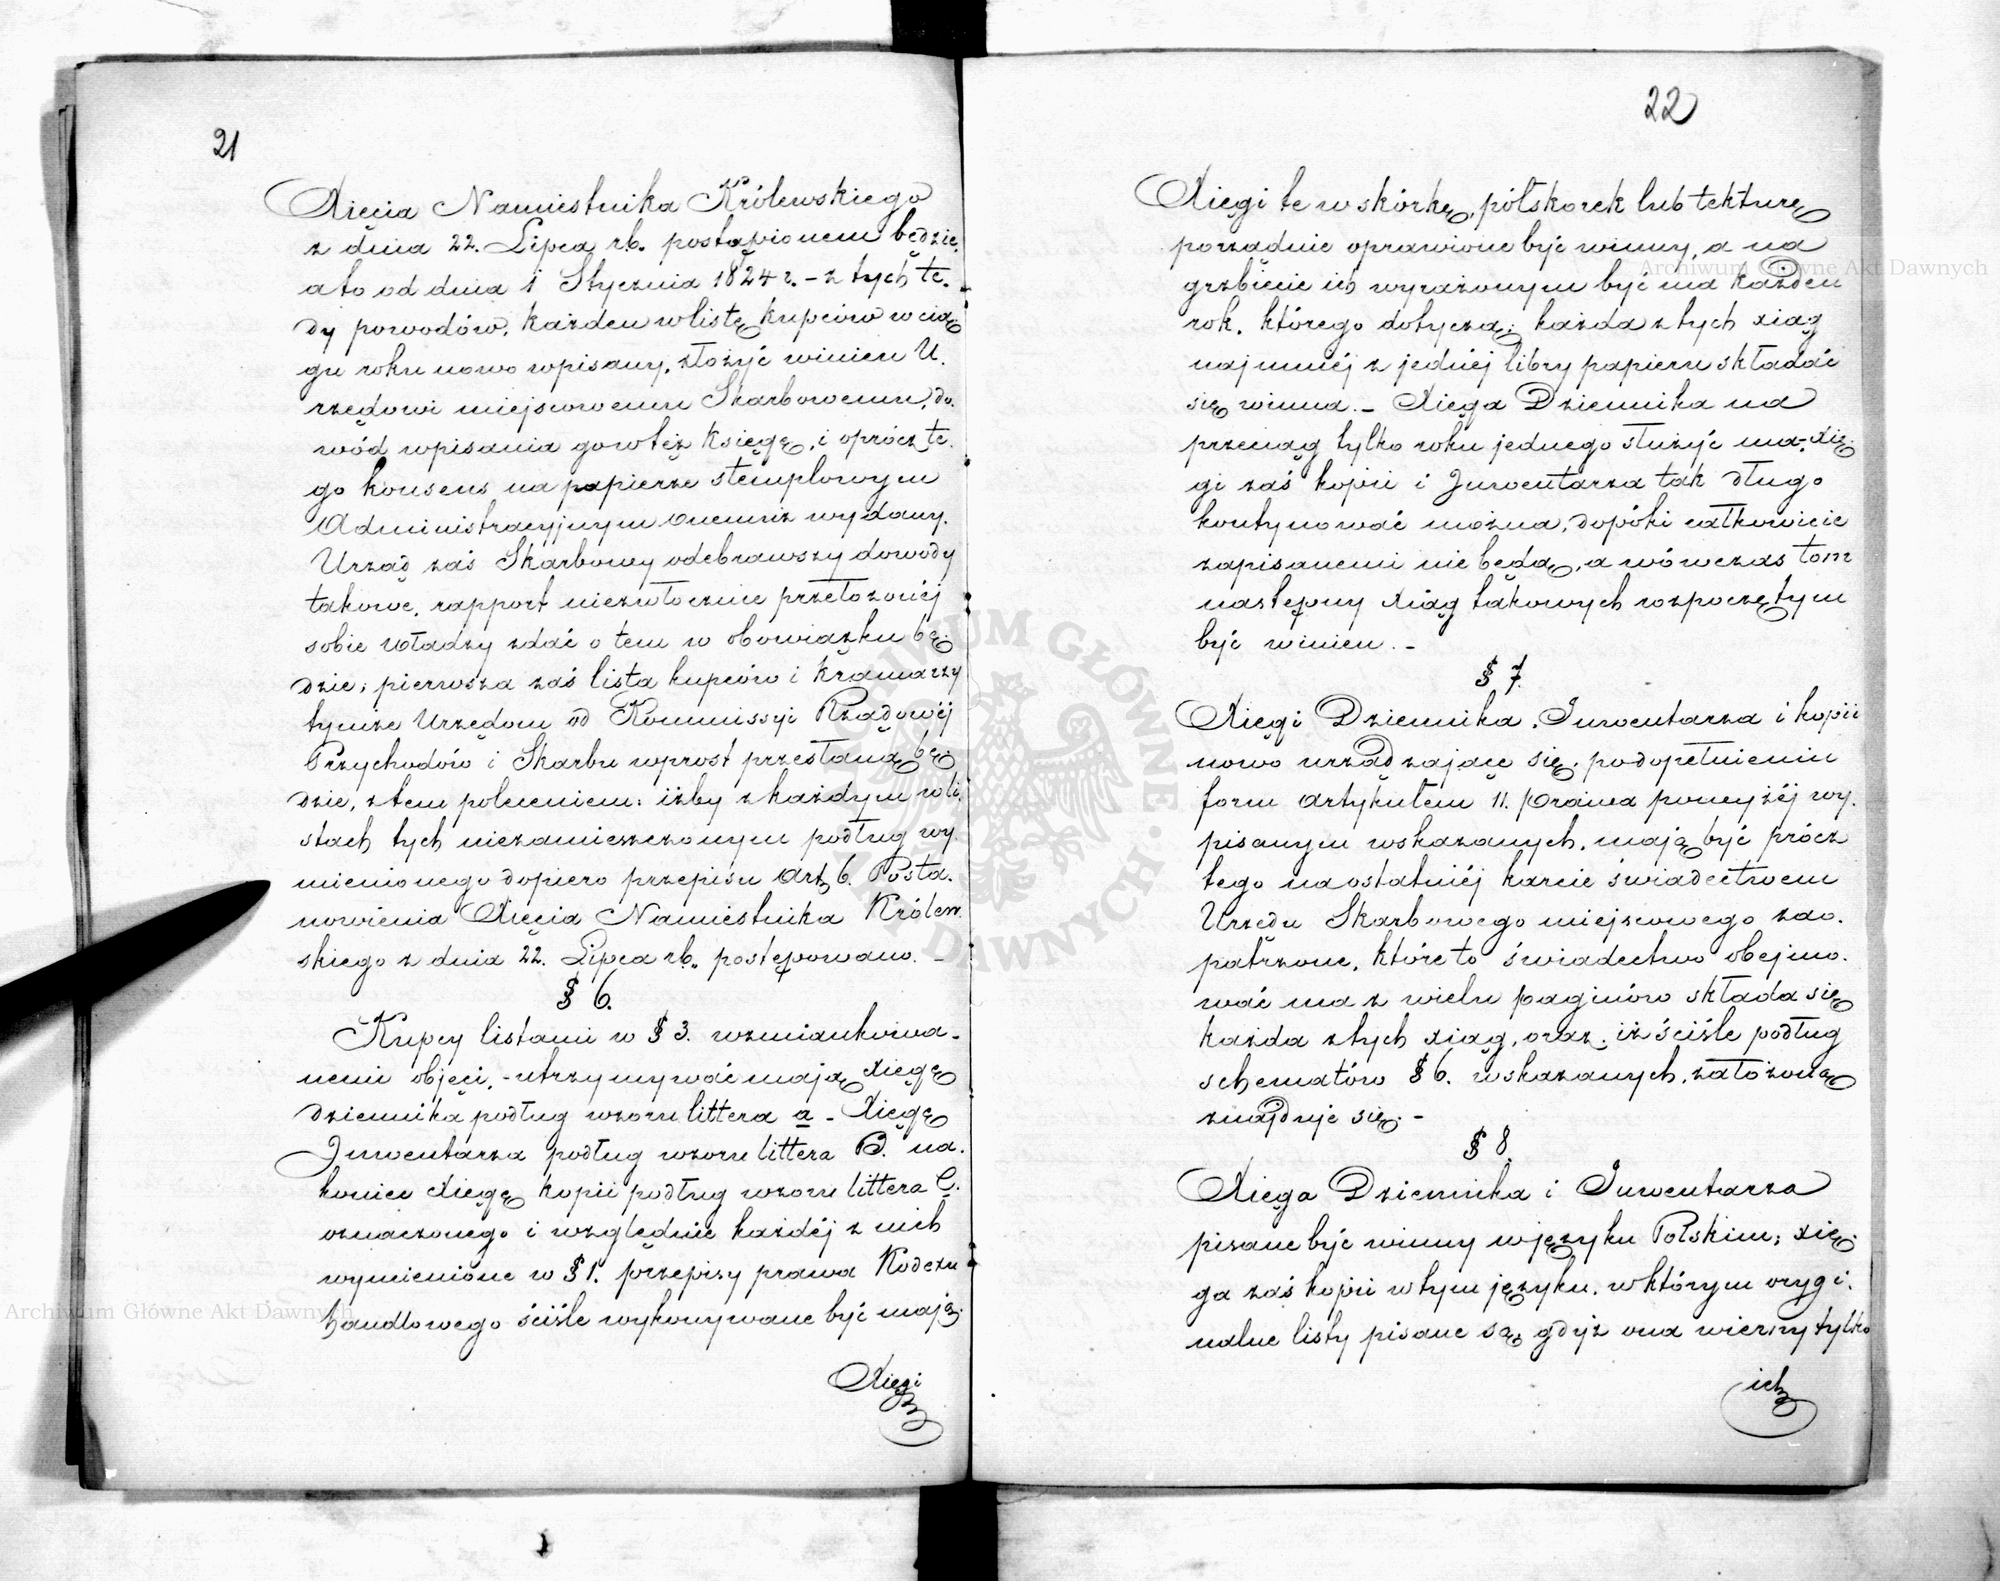 21
Xięcia Namiestnika Królewskiego
z dnia 22. Lipca r.b. postąpionem będzie,
a to od dnia 1 Stycznia 1824 r. – z tych te-
dy powodów, każden w listę kupców w cią-
gu roku nowo wpisany, złożyć winien U-
rzędowi miejscowemu Skarbowemu, do-
wód wpisania go w też księgę, i oprócz te-
go konsens na papierze stemplowym
Administracyjnym onemuż wydany.
Urząd zaś Skarbowy odebrawszy dowody
takowe, rapport niezwłocznie przełożonéj
sobie władzy zdać o tem w obowiązku bę-
dzie; pierwsza zaś lista kupców i kramarzy
tymże Urzędom od Kommissyi Rządowéj
Przychodów i Skarbu wprost przesłaną bę-
dzie, z tem poleceniem: iżby z każdym w li-
stach tych niezamieszczonym podług wy-
mienionego dopiero przepisu Art. 6. Posta-
nowienia Xięcia Namiestnika Królew-
skiego z dnia 22. Lipca r.b. postępowano. –
§ 6.
Kupcy listami w § 3. wzmiankowa-
nemi objęci, - utrzymywać mają xięgę
dziennika podług wzoru littera a – Xięgę
Inwentarza podług wzoru littera B. na-
koniec xięgę kopii podług wzoru littera C.
oznaczonego i względnie każdéj z nich
wymienione w § 1. przepisy prawa Kodexu
handlowego ściśle wykonywane być mają.
Xięgi
22
Xięgi te w skórkę, półskorek lub tekturę
porządnie oprawione być winny, a na
grzbiecie ich wyrażonym być ma każden
rok, którego dotyczą; każda z tych xiąg
najmniéj z jednéj libry papieru składać
się winna. – Xięga Dziennika na
przeciąg tylko roku jednego służyć ma; xię-
gi zaś kopii i Inwentarza tak długo
kontynować można, dopóki całkowicie
zapisanemi nie będą, a wówczas tom
następny xiąg takowych rozpoczętym
być winien. –
§ 7.
Xięgi Dziennika, Inwentarza i kopii
nowo urządzające się, po dopełnieniu
form Artykułem 11. prawa powyżéj wy-
pisanym wskazanych, mają być prócz
tego na ostatniéj karcie świadectwem
Urzędu Skarbowego miejscowego zao-
patrzone, które to świadectwo obejmo-
wać ma z wielu paginów składa się
każda z tych xiąg, oraz, iż ściśle podług
schematów § 6. wskazanych, założoną
znajduje się. –
§ 8.
Xięga Dziennika i Inwentarza
pisane być winny w języku Polskim; xię-
ga zaś kopii w tym języku, w którym orygi-
nalne listy pisane są, gdyż ona wierny tylko
ich
Archiwum Główne Akt Dawnych
Archiwum Główne Akt Dawnych
ARCHIWUM GŁÓWNE AKT DAWNYCH